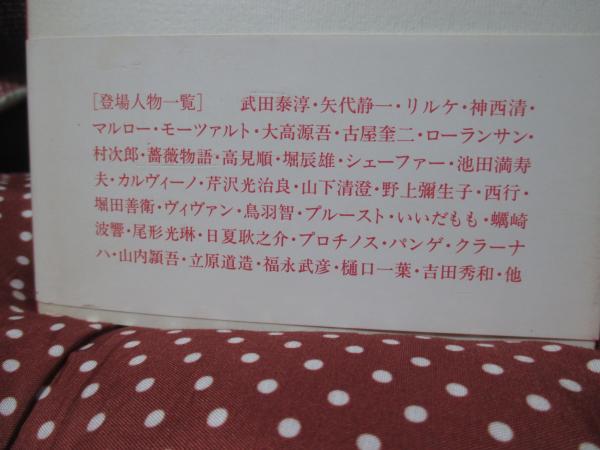 ［登場人物一覧］　武田泰淳・矢代静一・リルケ・神西清・
マルロー・モーツァルト・大高源吾・古屋奎二・ローランサン・
村次郎・薔薇物語・高見順・堀辰雄・シェーファー・池田満寿
夫・カルヴィーノ・芹沢光治良・山下清澄・野上彌生子・西行・
堀田善衛・ヴィヴァン・鳥羽智・プルースト・いいだもも・蠣崎
波響・尾形光琳・日夏耿之介・プロチノス・パンゲ・クラーナ
ハ・山内頴吾・立原道造・福永武彦・樋口一葉・吉田秀和・他